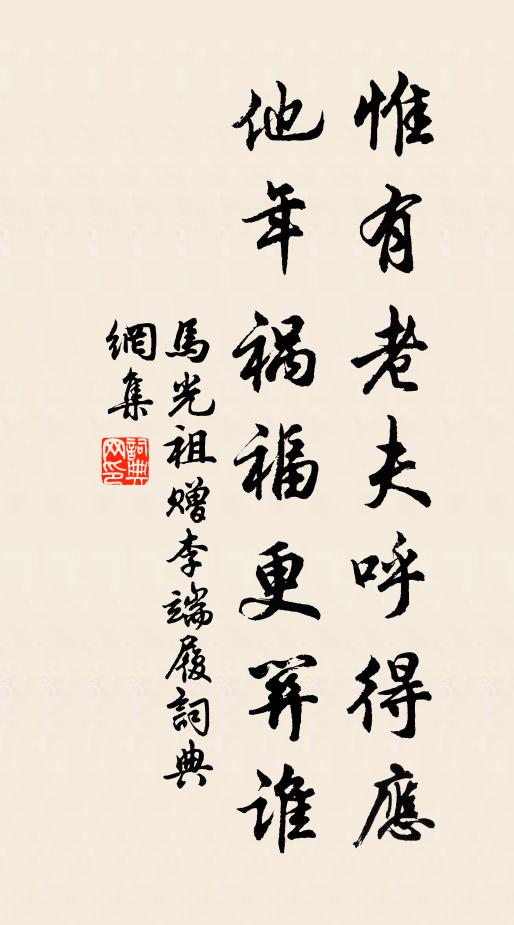 惟有老夫呼得應
他年禍福更誰
馬光祖贈李端履詞典
網集
詞典
网印